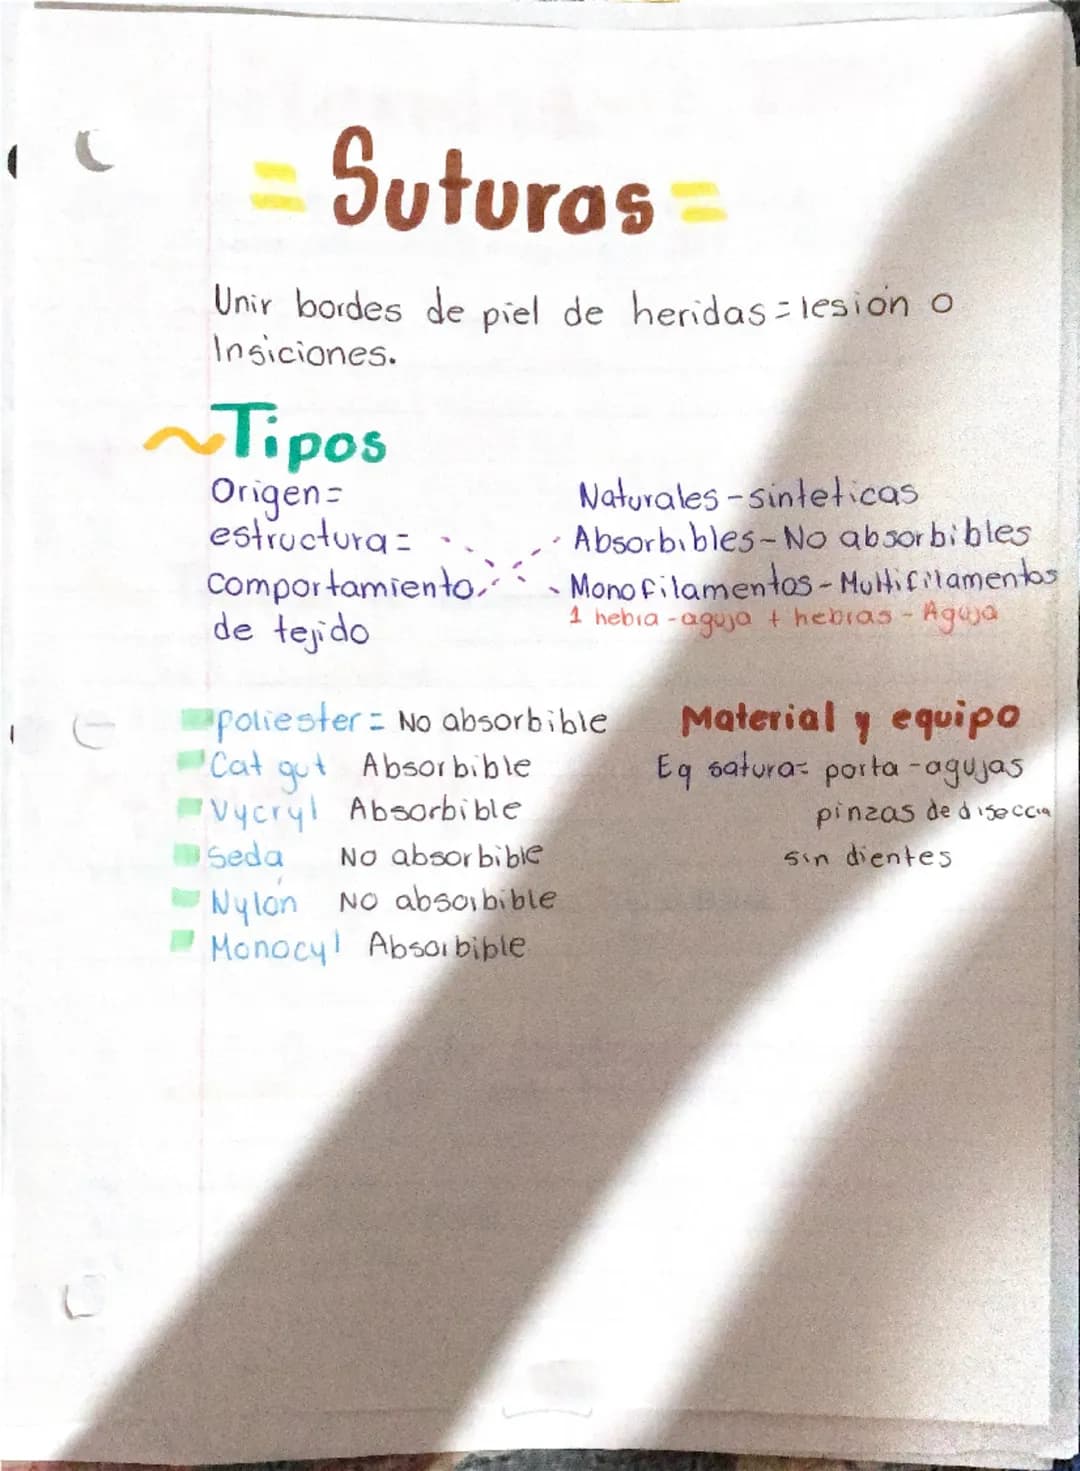 = Suturas =
Unir bordes de piel de heridas = lesión o
Insiciones.
~Tipos
Origen=
estructura=
comportamiento
de tejido
Naturales - sinteticas
Absorbibles - No absorbibles
Monofilamentos - Multifilamentos
1 hebra - aguja + hebras - Aguja
poliester = No absorbible
Cat gut Absorbible
Vycryl Absorbible
Seda No absorbible
Nylón No absorbible
Monocyl Absorbible
Material y equipo
Eq satura= porta-agujas
pinzas de diseccia
sin dientes